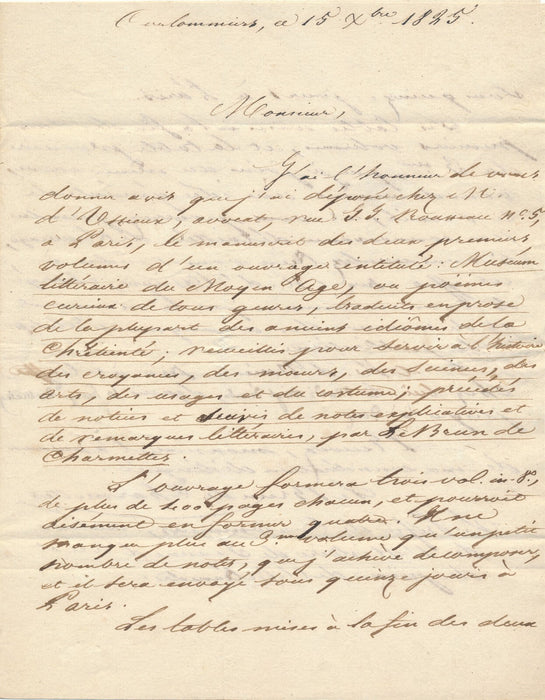 Coulommiers, ce 15 Xbre 1825.
Monsieur,
J'ai l'honneur de vous
donner avis que j'ai déposé chez M.
d'Ussieux, avocat, rue J. J. Rousseau nº 5,
à Paris, le manuscrit des deux premiers
volumes d'un ouvrage intitulé: Museum
littéraire du Moyen Age, ou poëmes
curieux de tous genres, traduits en prose
de la plupart des anciens idiômes de la
Chrétienté, recueillis pour servir à l'histoire
des croyances, des mœurs, des sciences, des
arts, des usages et du costume; précédés
de notices et suivis de notes explicatives et
de remarques littéraires, par Le Brun de
Charmettes.
L'ouvrage formera trois vol. in-8º,
de plus de 500 pages chacun, et pourroit
aisément en former quatre. Il ne
manque plus au 3me volume qu'un petit
nombre de notes, que j'achève de composer,
et il sera envoyé sous quinze jours à
Paris.
Les tables mises à la fin des deux